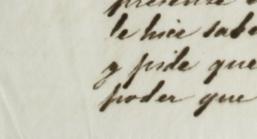 presente
le hice sabe
y pide que
poder que